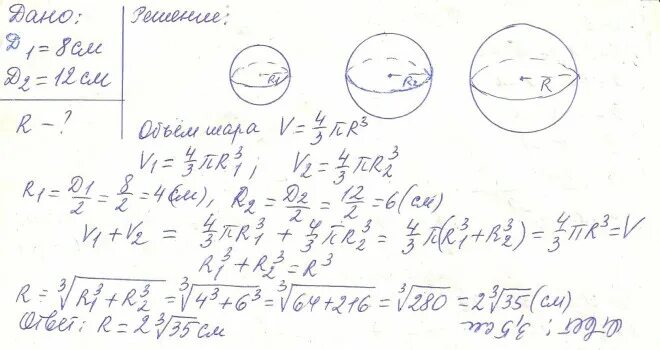 Дано: Решение:
D₁ = 8 см
D₂ = 12 см
R - ?
R₁ R₂ R
Объём шара V = 4/3 πR³
V₁ = 4/3 πR₁³ ; V₂ = 4/3 πR₂³
R₁ = D₁/2 = 8/2 = 4 (см), R₂ = D₂/2 = 12/2 = 6 (см)
V₁ + V₂ = 4/3 πR₁³ + 4/3 πR₂³ = 4/3 π(R₁³ + R₂³) = 4/3 πR³ = V
R₁³ + R₂³ = R³
R = ∛(R₁³ + R₂³) = ∛(4³ + 6³) = ∛(64 + 216) = ∛280 = 2∛35 (см)
Ответ: R = 2∛35 см
Ответ: 3,5 см